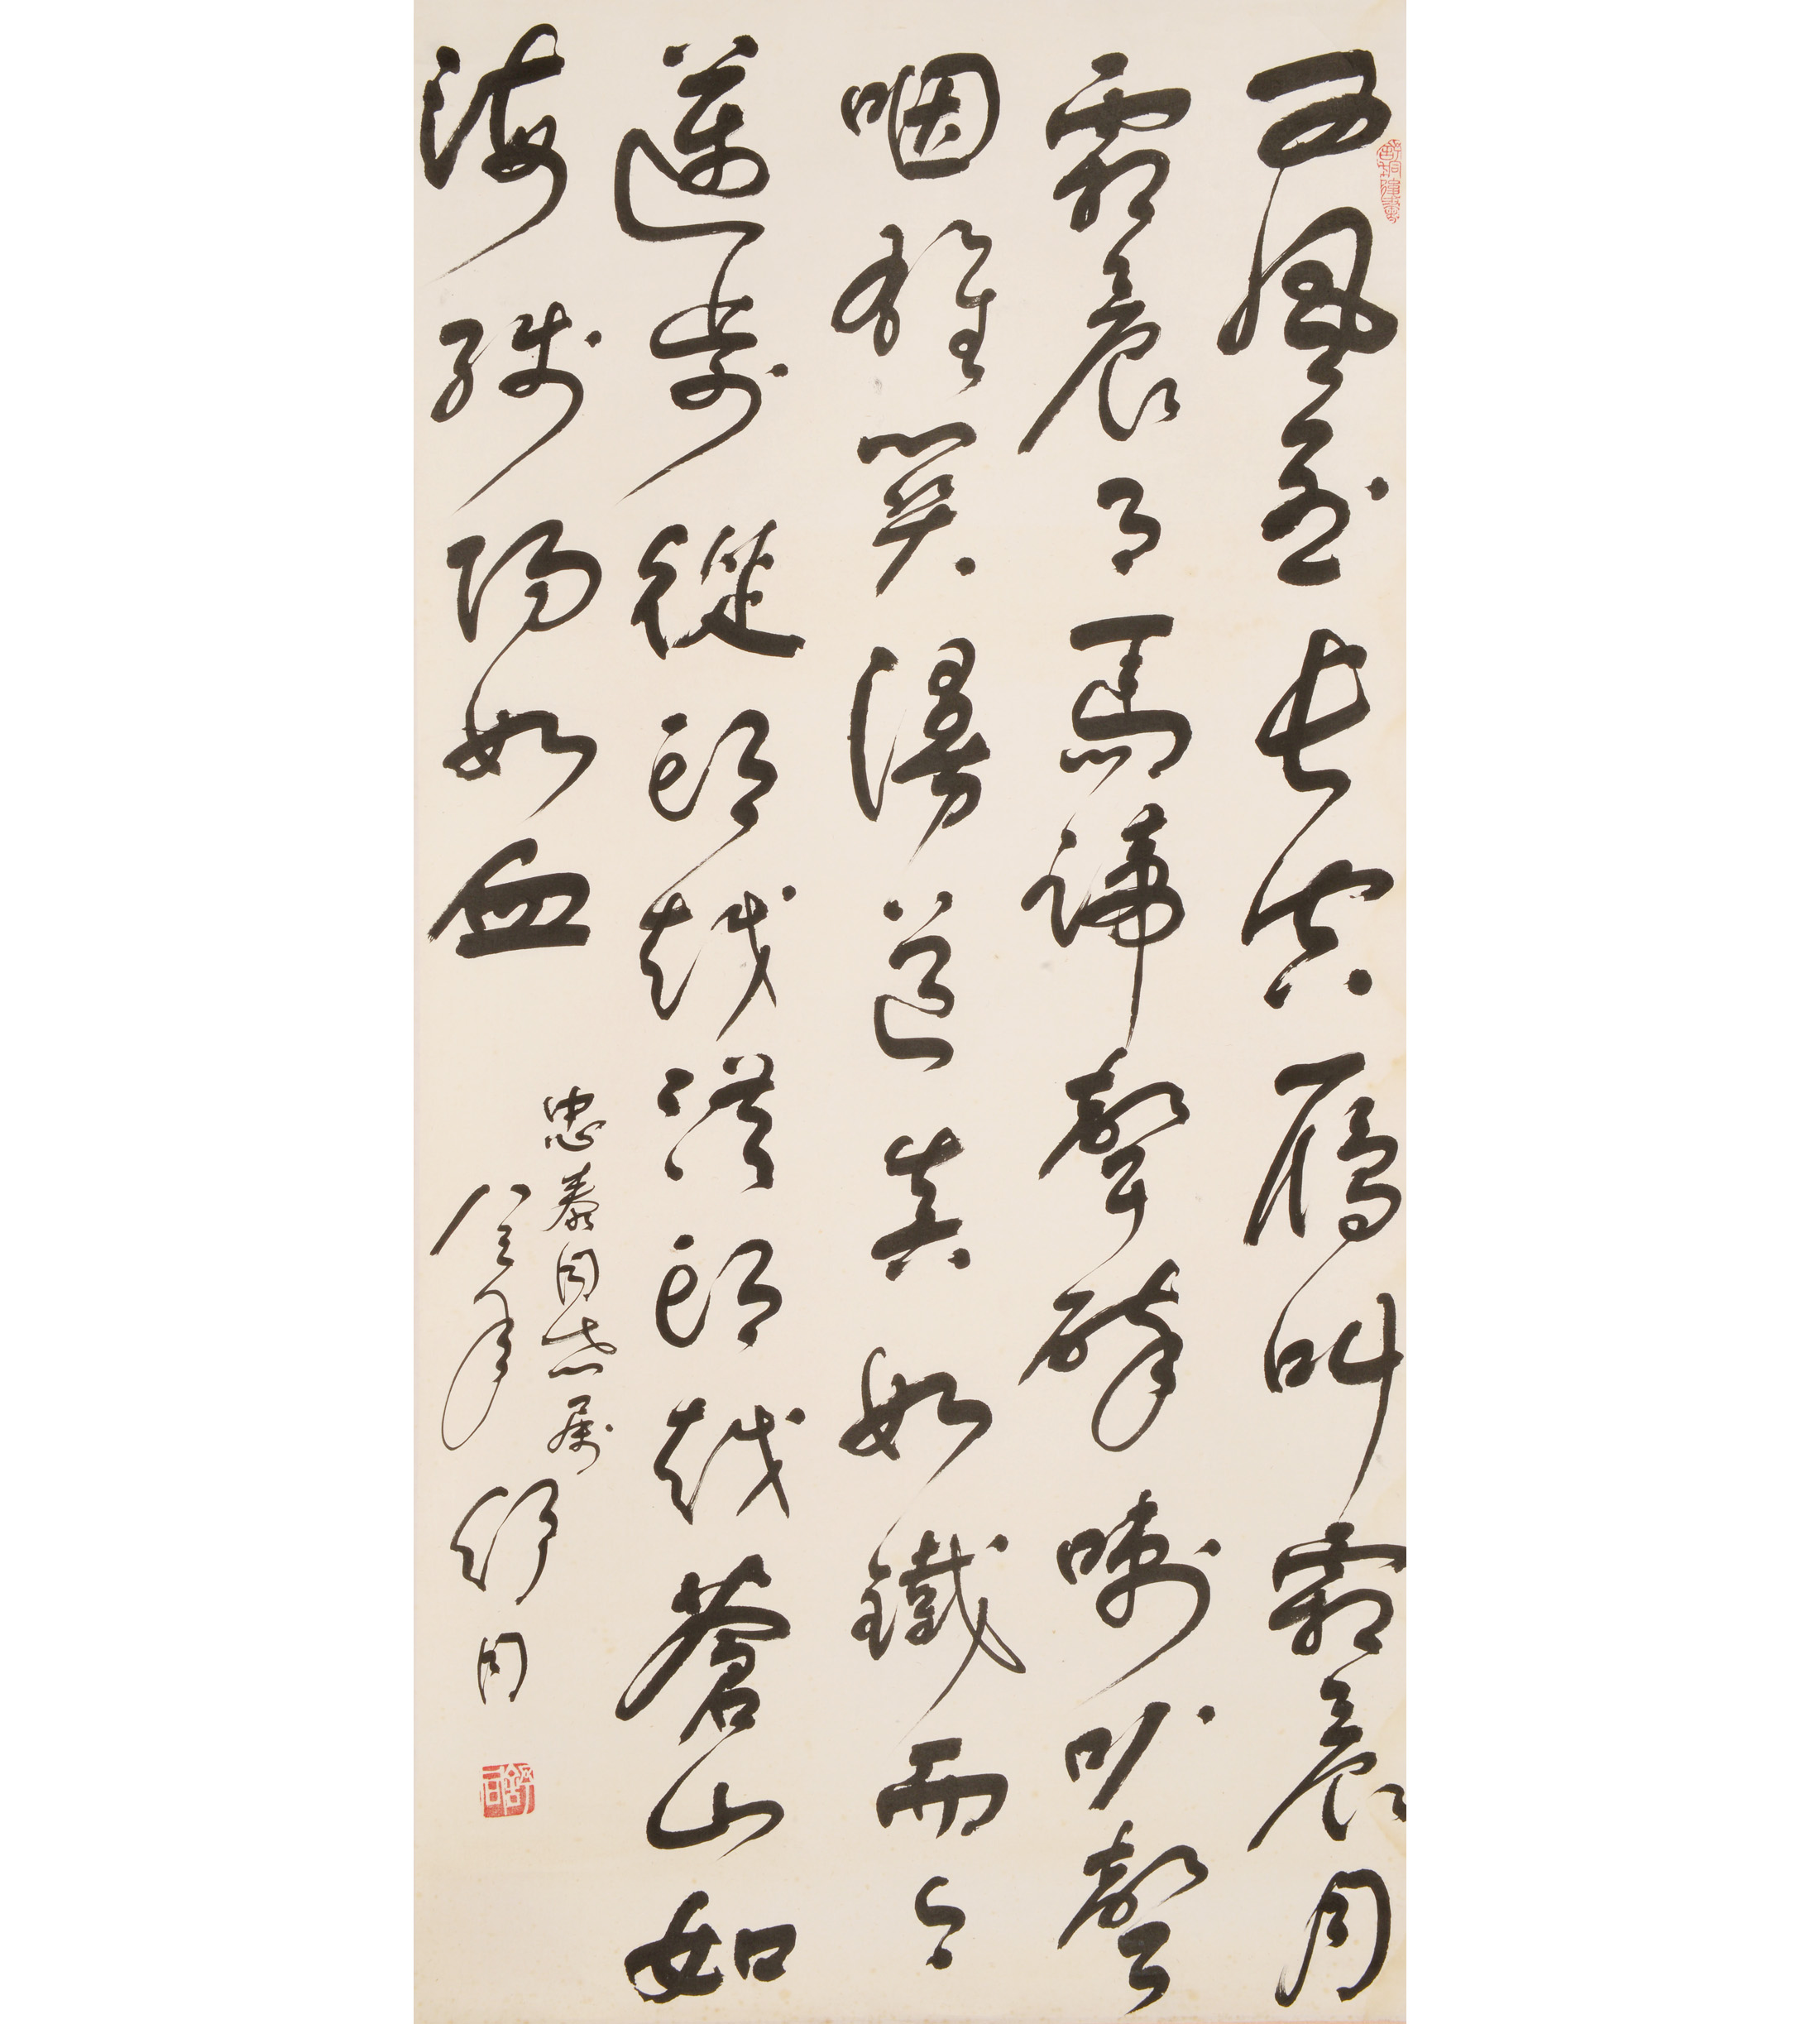 西風烈長空雁叫霜晨月
霜晨月馬蹄聲碎喇叭聲
咽雄關漫道真如鐵而今
邁步從頭越從頭越蒼山如
海殘陽如血
忠泰同志属
八三年 舒同
舒同